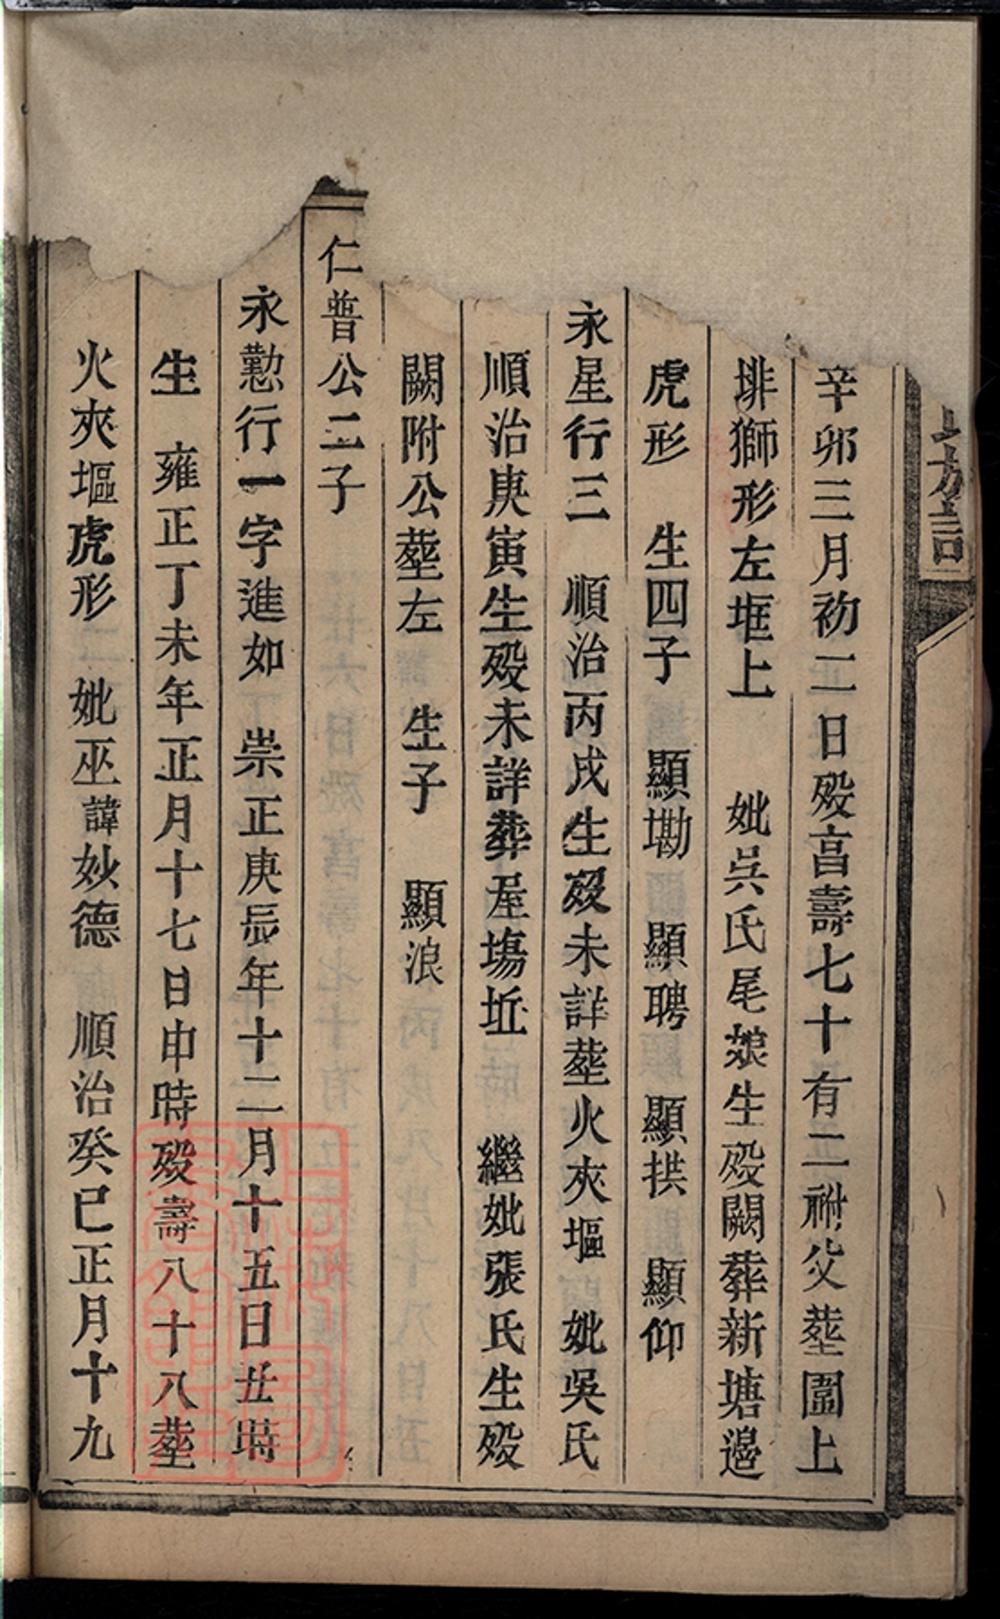 氏族譜
辛卯三月初二日歿富壽七十有二祔父塟圍上
排獅形左堐上　妣吳氏尾娘生歿闕葬新塘邊
虎形　生四子　顯墈　顯聘　顯拱　顯仰
永星行三　順治丙戌生歿未詳塟火夾塸　妣吳氏
順治庚寅生歿未詳葬屋塲坵　繼妣張氏生歿
闕附公塟左　生子　顯浪
仁普公二子
永懃行一字進如　崇正庚辰年十二月十五日丑時
生　雍正丁未年正月十七日申時歿壽八十八塟
火夾塸虎形　妣巫諱妙德　順治癸巳正月十九